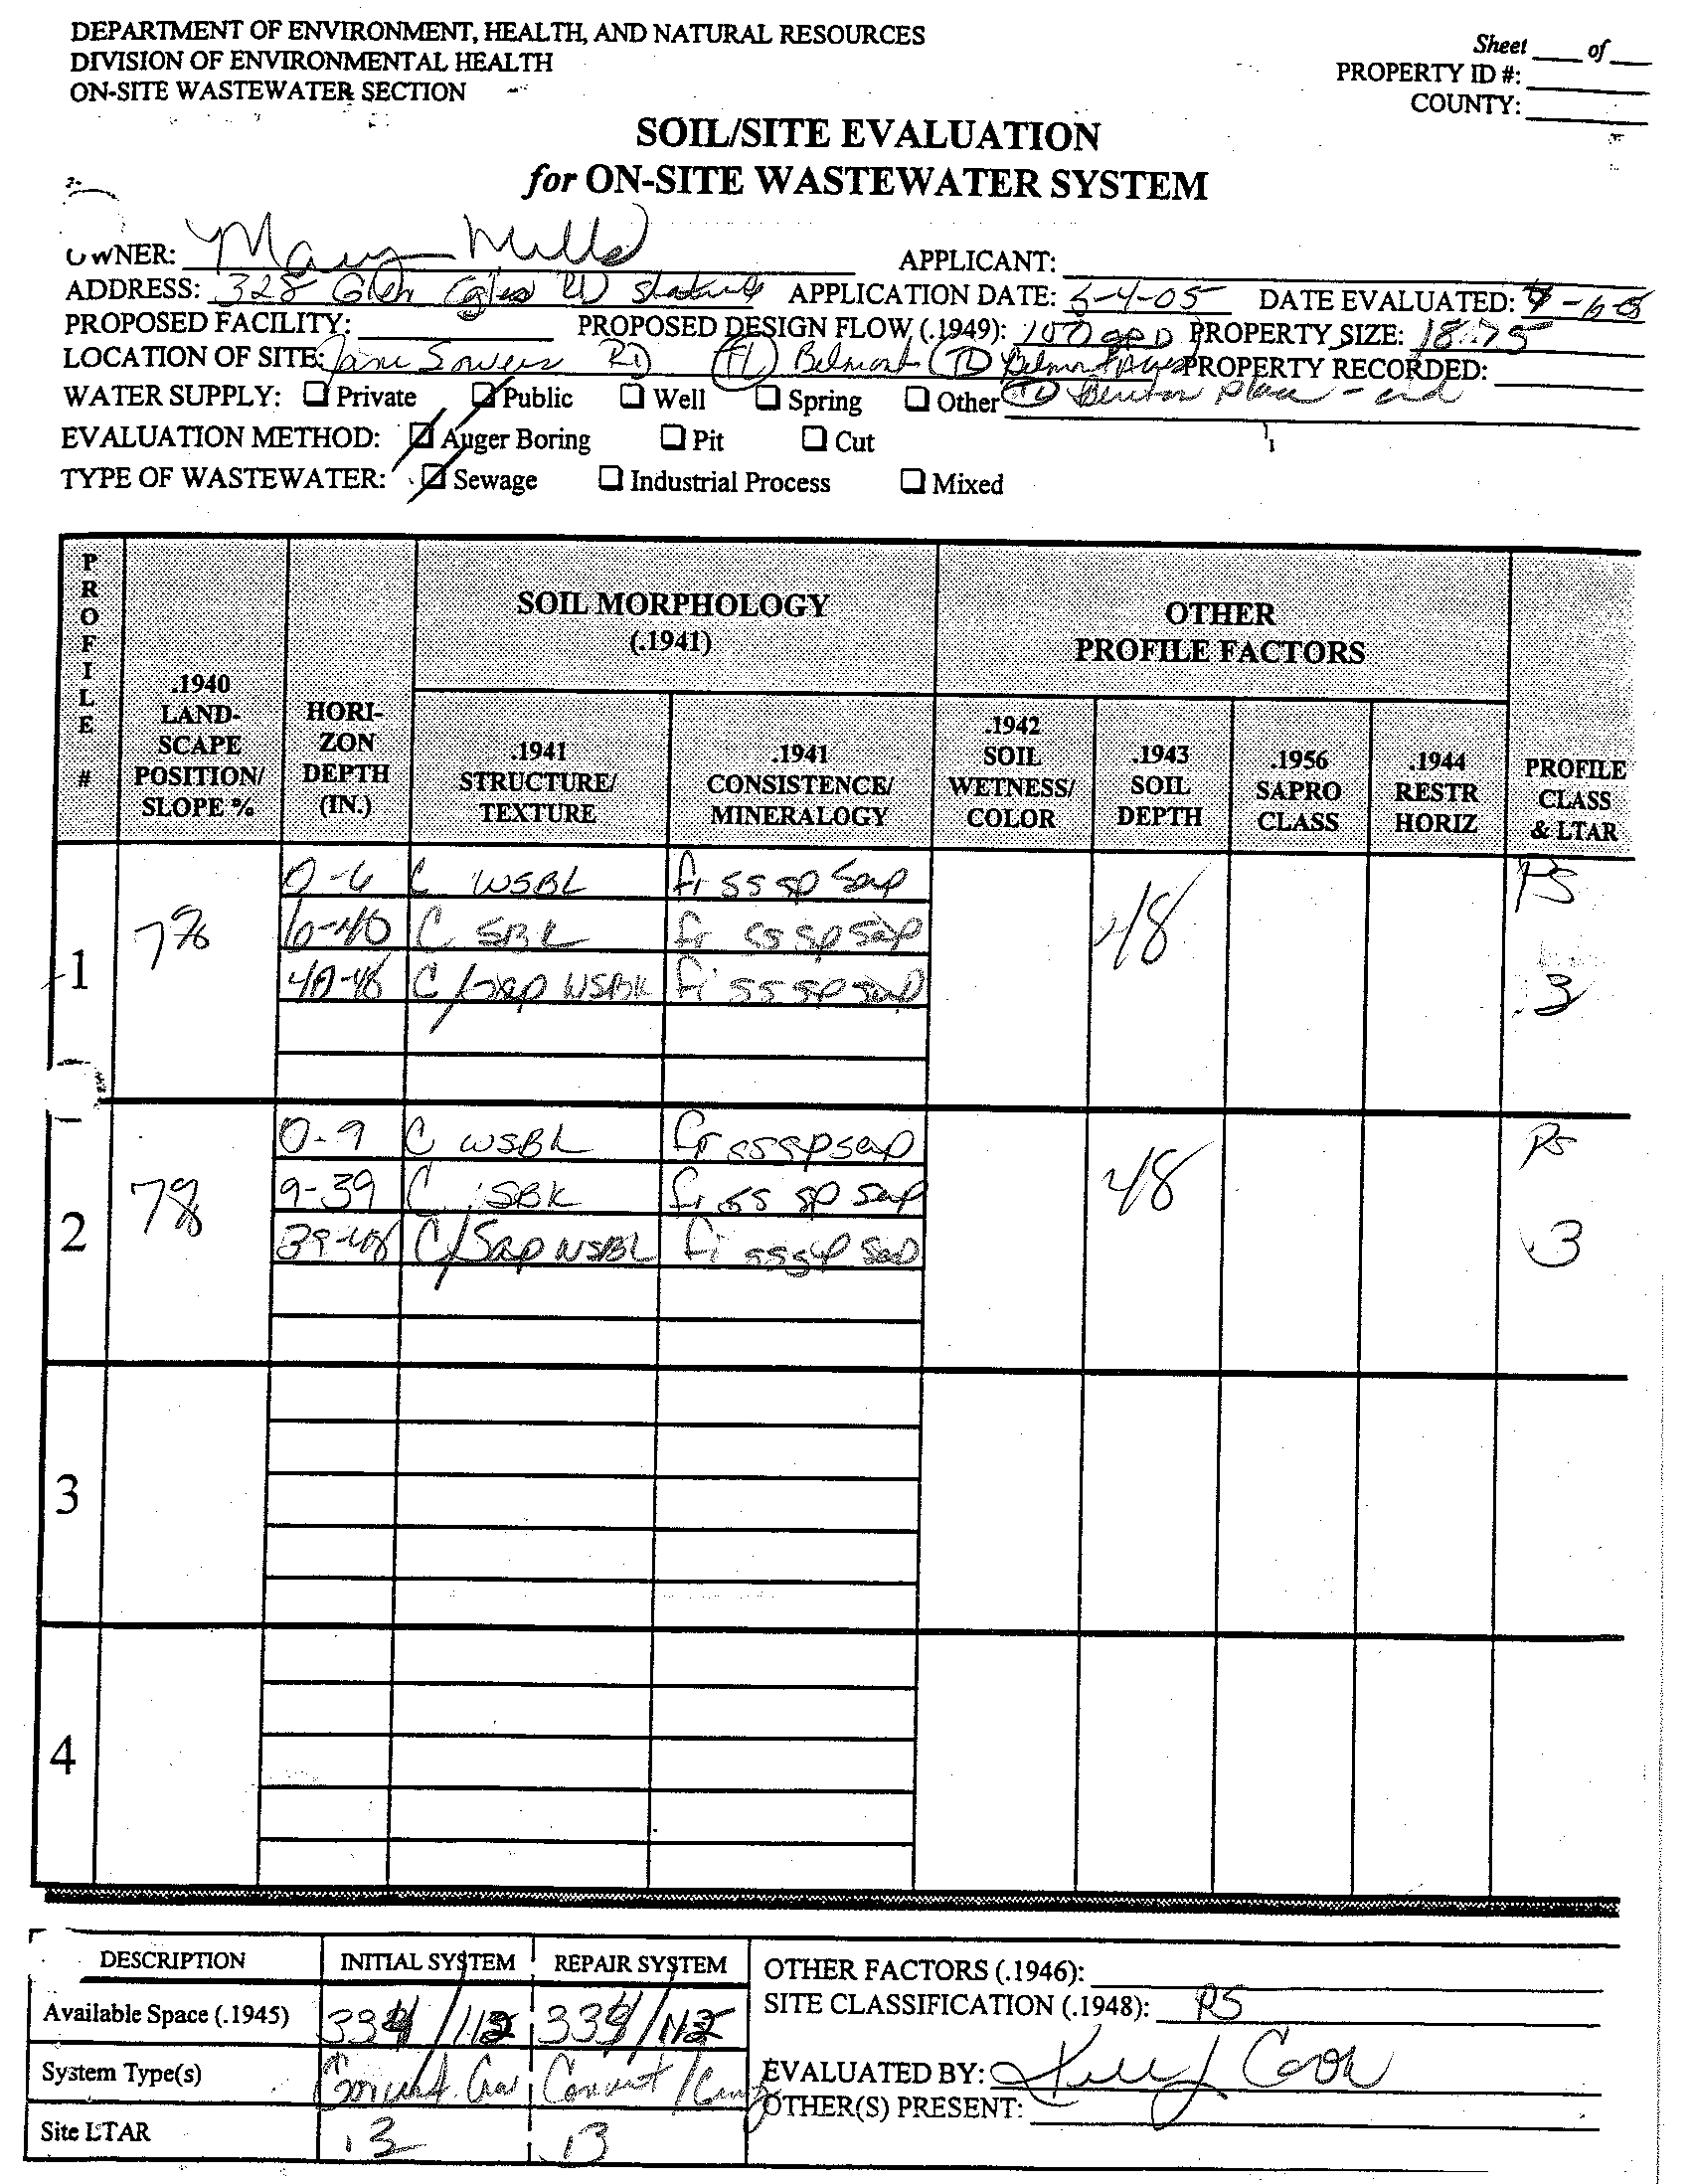 DEPARTMENT OF ENVIRONMENT, HEALTH, AND NATURAL RESOURCES
DIVISION OF ENVIRONMENTAL HEALTH
ON-SITE WASTEWATER SECTION
Sheet ___ of ___
PROPERTY ID #:
COUNTY:
SOIL/SITE EVALUATION
for ON-SITE WASTEWATER SYSTEM
OWNER: Mary Mills APPLICANT:
ADDRESS: 328 Glen Eagles RD APPLICATION DATE: 5-4-05 DATE EVALUATED:
PROPOSED FACILITY: PROPOSED DESIGN FLOW (.1949): 100 GPD PROPERTY SIZE: 18.75
LOCATION OF SITE: Jane Sowers RD TL Belmont TL Belmont PROPERTY RECORDED:
WATER SUPPLY: Private Public Well Spring Other Benton Place - end
EVALUATION METHOD: Auger Boring Pit Cut
TYPE OF WASTEWATER: Sewage Industrial Process Mixed
PROFILE #
.1940 LAND-SCAPE POSITION/ SLOPE %
HORI-ZON DEPTH (IN.)
SOIL MORPHOLOGY (.1941)
.1941 STRUCTURE/ TEXTURE
.1941 CONSISTENCE/ MINERALOGY
OTHER PROFILE FACTORS
.1942 SOIL WETNESS/ COLOR
.1943 SOIL DEPTH
.1956 SAPRO CLASS
.1944 RESTR HORIZ
PROFILE CLASS & LTAR
1 7% 48 PS .3
0-6 C WSBK fr ss sp sap
6-40 C SBK fr ss sp sap
40-48 C/sap WSBK fi ss sp sap
2 7% 48 PS .3
0-9 C WSBK fr ss sp sap
9-39 C SBK fr ss sp sap
39-48 C/Sap WSBK fi ss sp sap
3
4
DESCRIPTION INITIAL SYSTEM REPAIR SYSTEM
Available Space (.1945) 334/112 334/112
System Type(s)
Site LTAR .3 .3
OTHER FACTORS (.1946):
SITE CLASSIFICATION (.1948): PS
EVALUATED BY: Cook
OTHER(S) PRESENT: